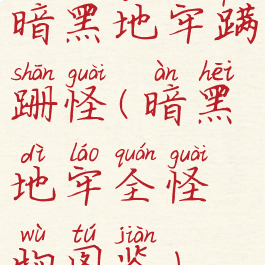 暗黑地牢蹒
shān guài àn hēi
跚怪(暗黑
dì láo quán guài
地牢全怪
wù tú jiàn
物图鉴)